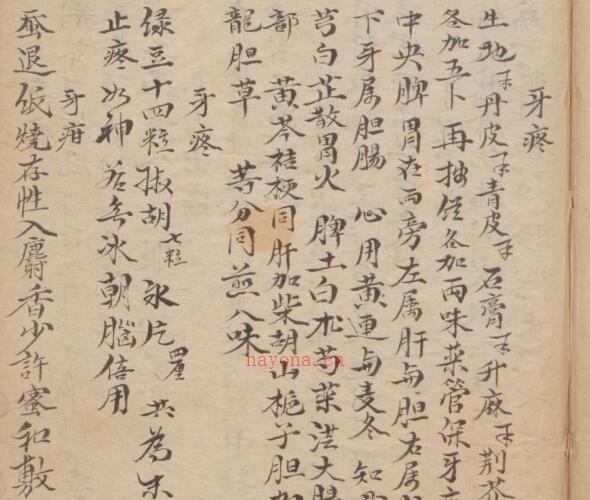 牙疼
生地 丹皮 青皮 石膏 升麻 荆芥
各加五卜 再按經各加兩味藥管保牙疼
中央脾胃在兩旁左属肝与胆右属
下牙属胆腸 心用黄連与麦冬 知
芎白芷散胃火 脾土白朮芍藥洪大腸
部 黄芩桔梗同肝加柴胡山梔子胆加
龍胆草 等分同煎八味
牙疼
绿豆十四粒椒胡七粒 氷片四厘 共為末
止疼如神 若無冰朝腦倍用
牙疳
蚕退纸燒存性入麝香少許蜜和敷
nayona.cn